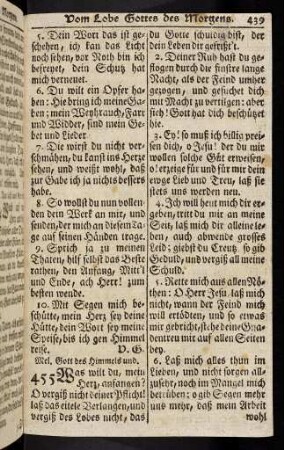 Vom Lobe Gottes des Morgens. 439
5. Dein Wort das ist ge-
schehen, ich kan das Licht
noch sehen, vor Noth bin ich
befreyet, dein Schutz hat
mich verneuet.
6. Du wilt ein Opfer ha-
ben: Hie bring ich meine Ga-
ben; mein Weyhrauch, Farr
und Widder, sind mein Ge-
bet und Lieder
7. Die wirst du nicht ver-
schmähen, du kanst ins Hertz
sehen, und weißt wohl, daß
zur Gabe ich ja nichts bessers
habe.
8. So wollst du nun vollen-
den dein Werk an mir, und
senden, der mich an diesem Ta-
ge auf seinen Händen trage.
9. Sprich Ja zu meinen
Thaten, hilf selbst das Beste
rathen, den Anfang, Mitt'l
und Ende, ach Herr! zum
besten wende.
10. Mit Segen mich be-
schütte, mein Herz sey deine
Hütte, dein Wort sey meine
Speise, bis ich gen Himmel
reise. P. G.
Mel. Gott des Himmels und.
455 Was wilt du, mein
Herz, anfangen?
O vergiß nicht deiner Pflicht!
laß das eitele Verlangen, und
vergiß des Lobes nicht, das
du Gotte schuldig bist, der
dein Leben dir gefrißt.
2. Deiner Ruh hast du ge-
pflogen durch die finstre lange
Nacht, als der Feind umher
gezogen, und gesuchet dich
mit Macht zu vertilgen: aber
sieh! Gott hat dich beschützet
hie.
3. Ey! so muß ich billig prei-
sen dich, o Jesu! der du mir
wollen solche Güt erweisen,
o! erzeige für und für mir dein
ewge Lieb und Treu, laß sie
stets uns werden neu.
4. Ich will heut mich dir er-
geben, tritt du mir an meine
Seit, laß mich dir alleine le-
ben, auch abwende grosses
Leid; giebst du Creutz, so gib
Geduld, und vergiß all meine
Schuld.
5. Rette mich aus allen Nö-
then: O Herr Jesu, laß mich
nicht, wann der Feind mich
will ertödten, und so etwas
mir gebricht, stehe deine Gna-
dentreu mir auf allen Seiten
bey.
6. Laß mich alles thun im
Lieben, und nicht sorgen all-
zusehr, noch im Mangel mich
betrüben; o gib Segen mehr
uns mehr, daß mein Arbeit
wohl